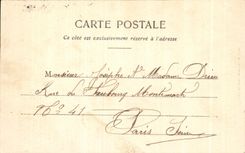 CARTE POSTALE
Ce côté est exclusivement réservé à l'adresse
Monsieur Josephe Madame
Rue du Faubourg Montmartre
No 41
Paris Seine